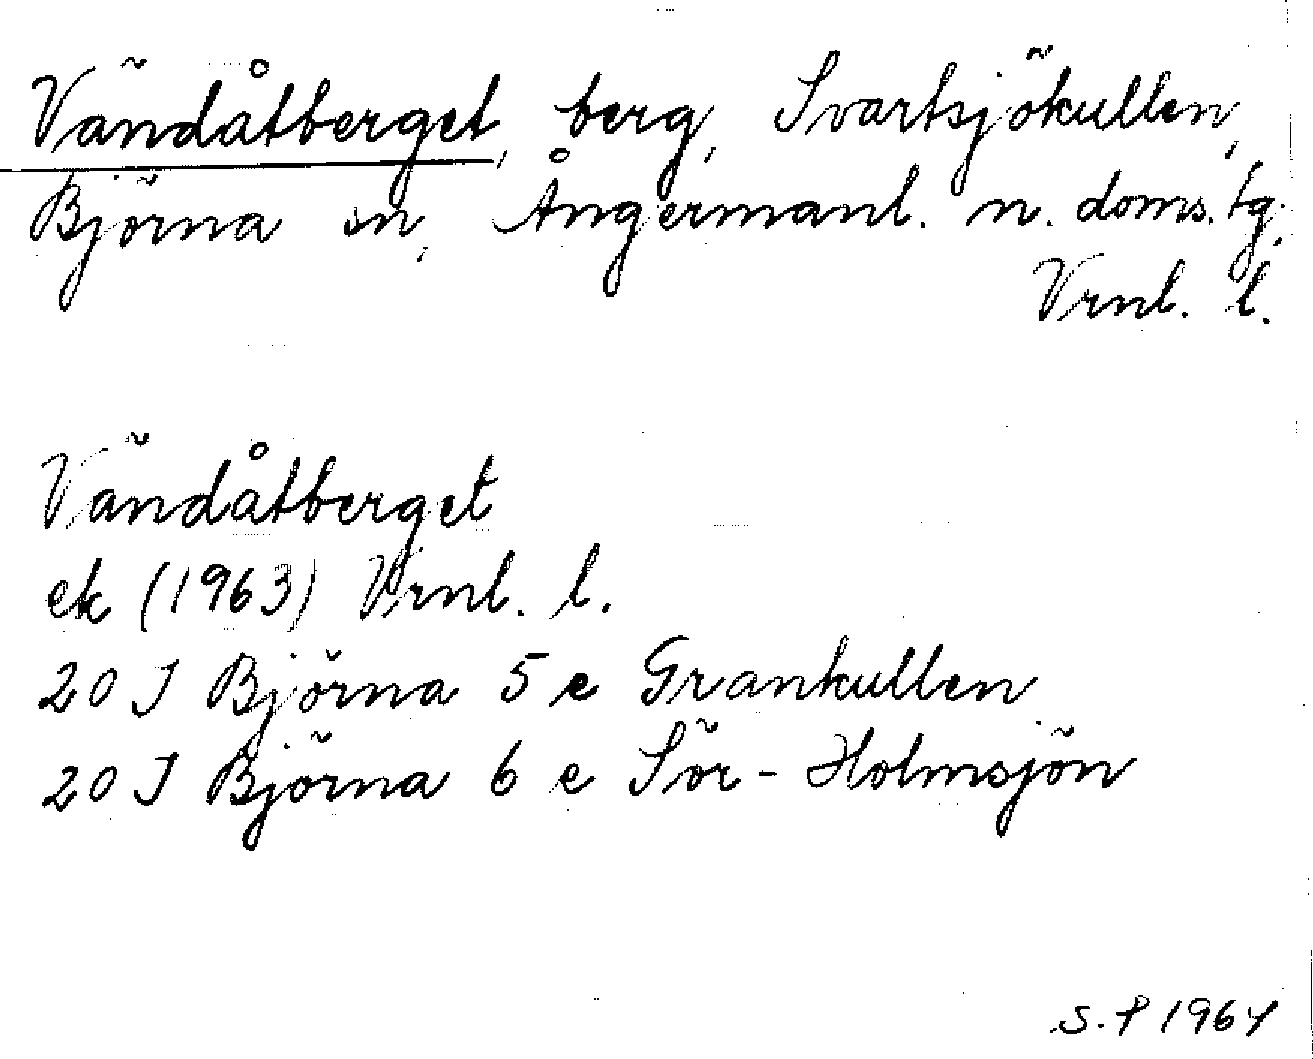 Vändåtberget, berg, Svartsjökullen,
Björna sn, Ångermanl. n. doms. tg,
Vrnl. l.
Vändåtberget
ek (1963) Vrnl. l.
20 J Björna 5 e Grankullen
20 J Björna 6 e Sör-Holmsjön
S. P 1964